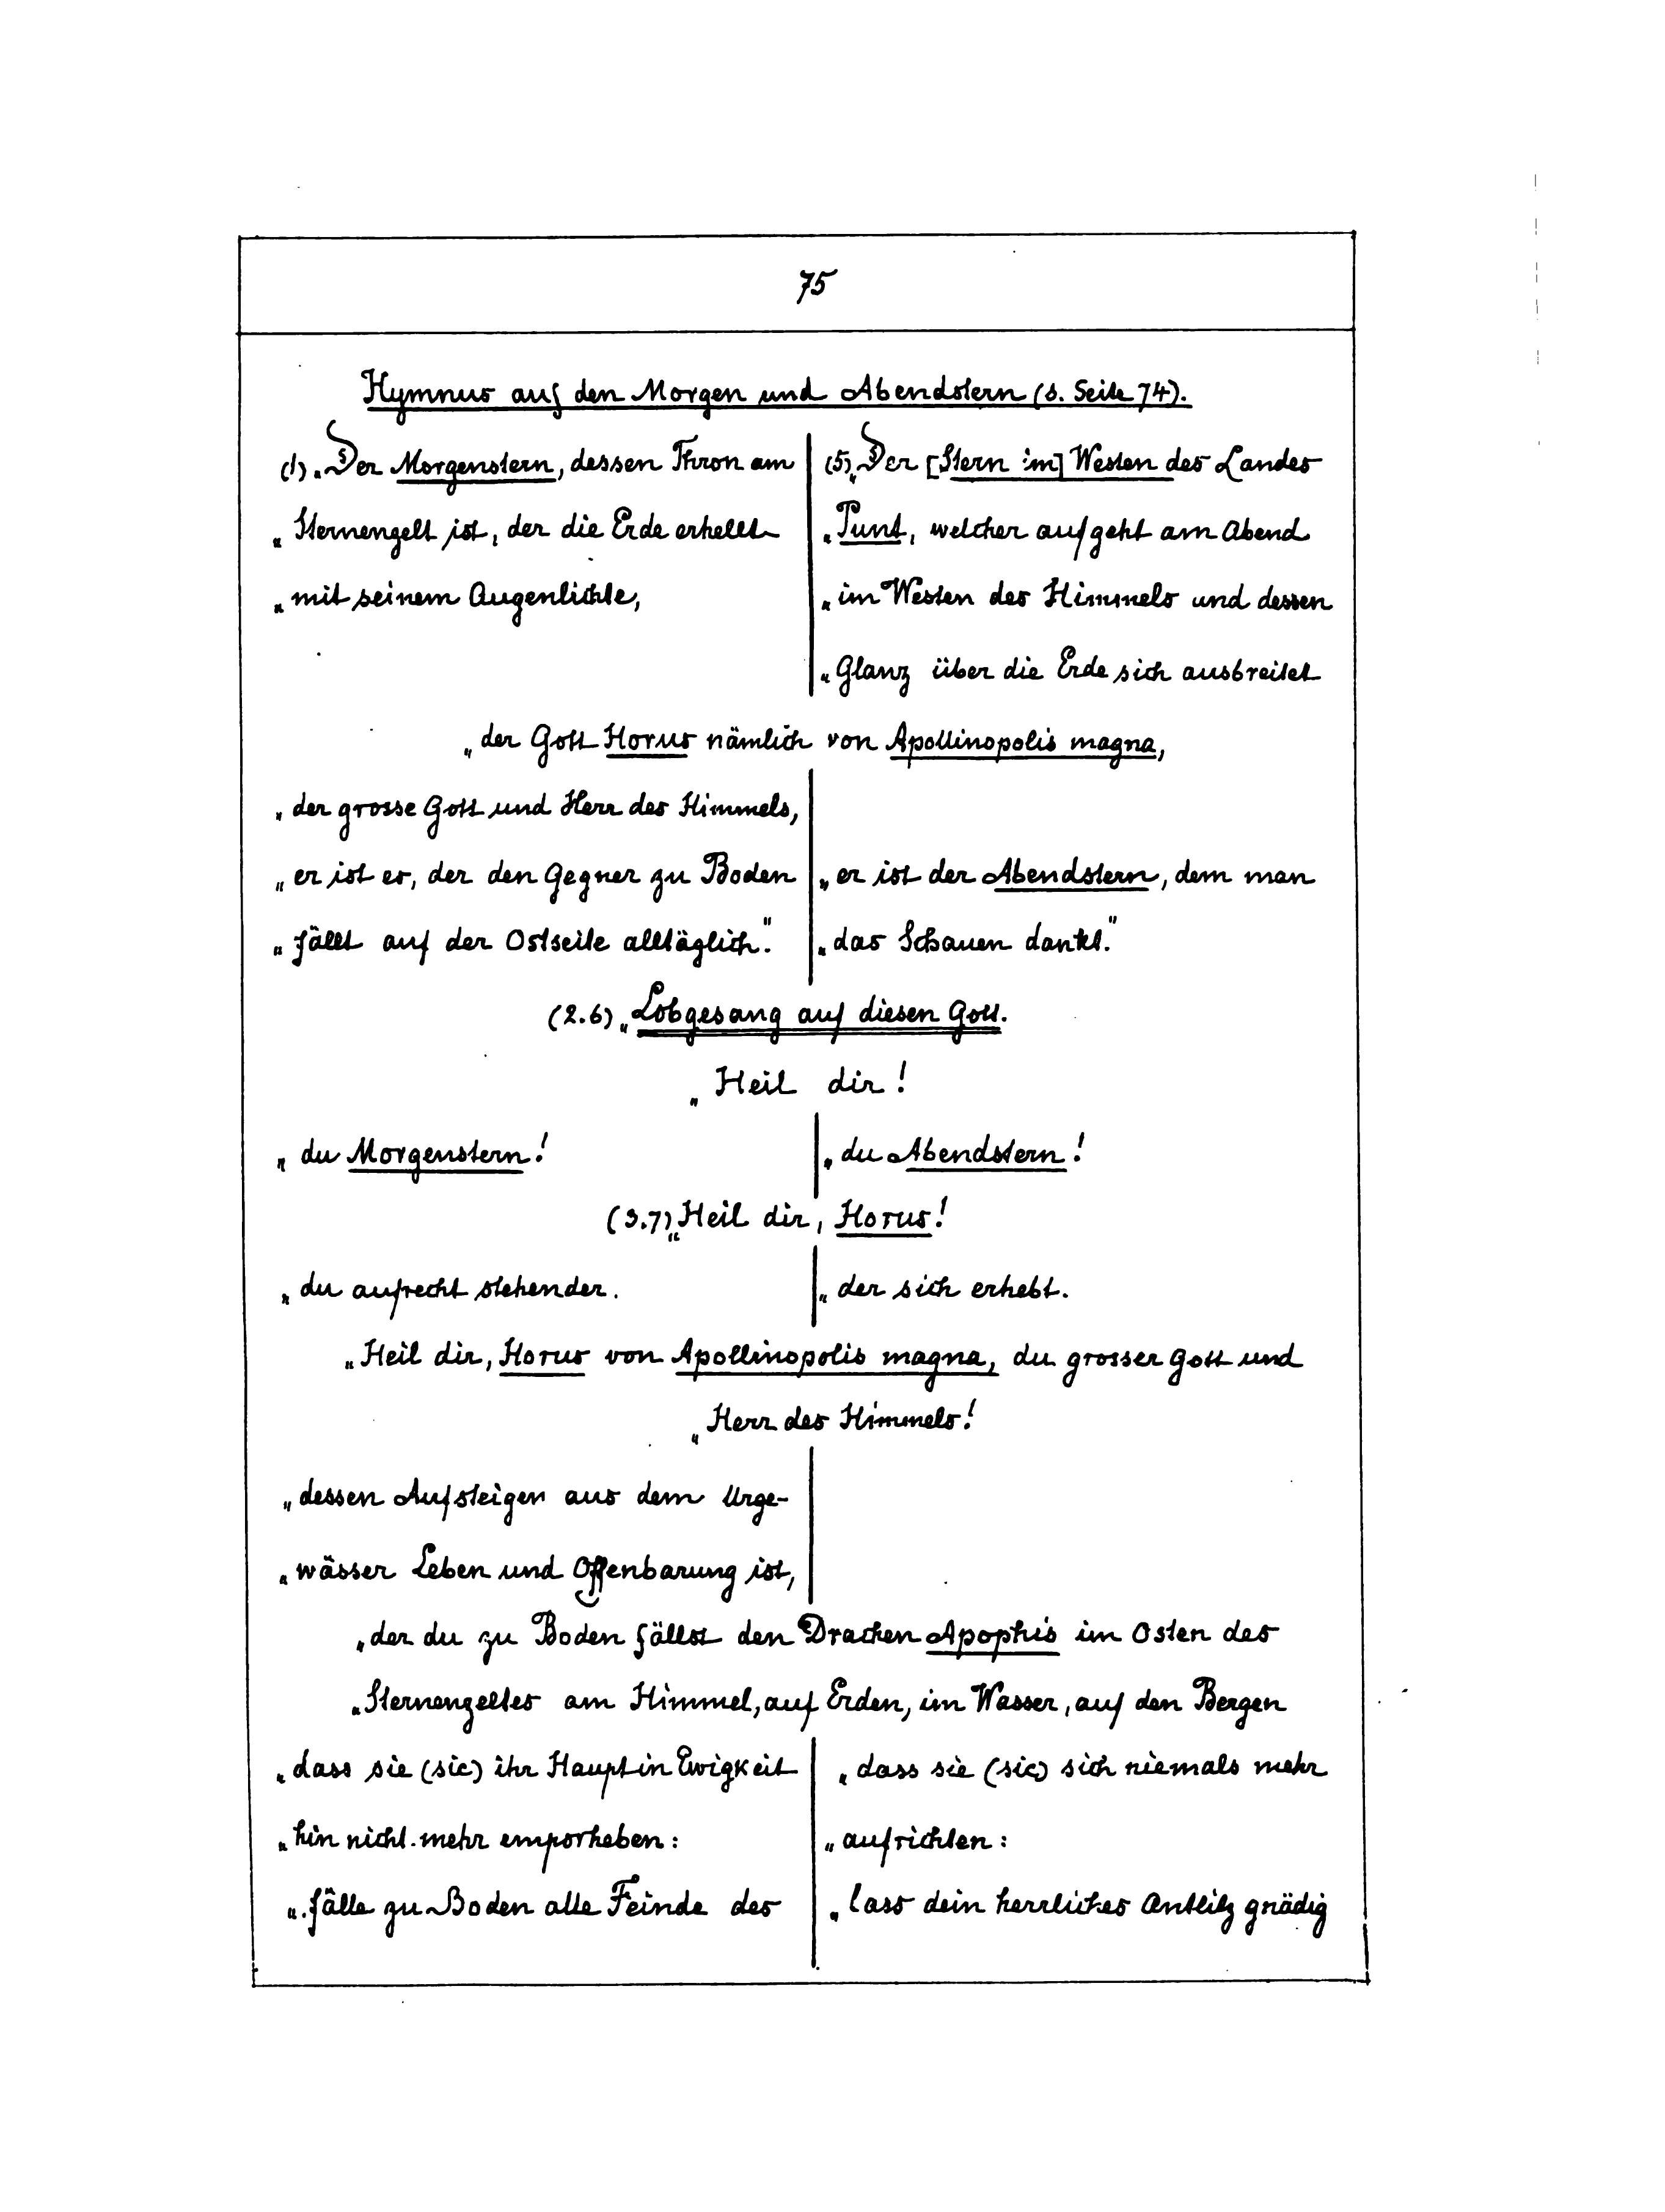 75
Hymnus auf den Morgen und Abendstern (s. Seite 74).
(1) „Der Morgenstern, dessen Thron am
„Sternenzelt ist, der die Erde erhellt
„mit seinem Augenlichte,
(5) „Der [Stern im] Westen des Landes
„Punt, welcher aufgeht am Abend
„im Westen des Himmels und dessen
„Glanz über die Erde sich ausbreitet
„der Gott Horus nämlich von Apollinopolis magna,
„der grosse Gott und Herr des Himmels,
„er ist es, der den Gegner zu Boden
„fällt auf der Ostseite alltäglich."
„er ist der Abendstern, dem man
„das Schauen dankt."
(2.6) „Lobgesang auf diesen Gott.
„Heil dir!
„du Morgenstern!
„du Abendstern!
(3.7) „Heil dir, Horus!
„du aufrecht stehender.
„der sich erhebt.
„Heil dir, Horus von Apollinopolis magna, du grosser Gott und
„Herr des Himmels!
„dessen Aufsteigen aus dem Urge-
„wässer Leben und Offenbarung ist,
„der du zu Boden fällst den Drachen Apophis im Osten des
„Sternenzeltes am Himmel, auf Erden, im Wasser, auf den Bergen
„dass sie (sic) ihr Haupt in Ewigkeit
„hin nicht mehr emporheben:
„fälle zu Boden alle Feinde des
„dass sie (sic) sich niemals mehr
„aufrichten:
„lass dein herrliches Antlitz gnädig